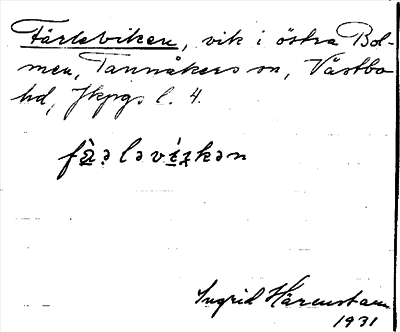 Färlaviken, vik i östra Bol-
men, Tannåkers sn, Västbo
hd, Jkpgs l. 4.
Ingrid Härenstam
1931